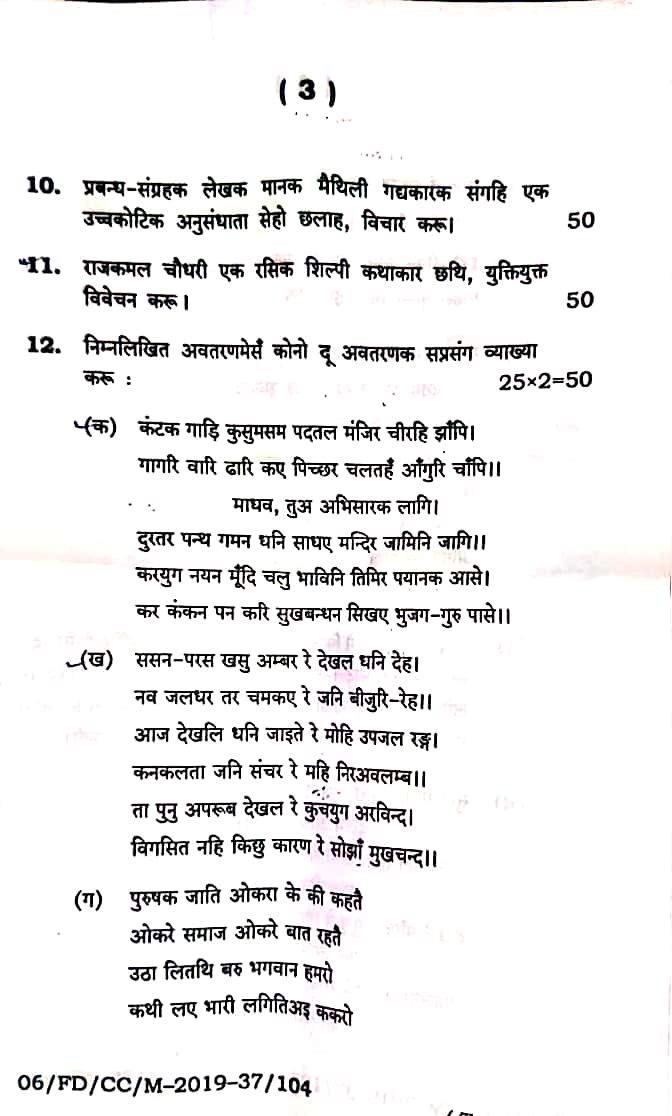 ( 3 )
10. प्रबन्ध-संग्रहक लेखक मानक मैथिली गद्यकारक संगहि एक
उच्चकोटिक अनुसंधाता सेहो छलाह, विचार करू। 50
11. राजकमल चौधरी एक रसिक शिल्पी कथाकार छथि, युक्तियुक्त
विवेचन करू। 50
12. निम्नलिखित अवतरणमेसँ कोनो दू अवतरणक सप्रसंग व्याख्या
करू : 25×2=50
(क) कंटक गाड़ि कुसुमसम पदतल मंजिर चीरहि झाँपि।
गागरि वारि ढारि कए पिच्छर चलतहँ आँगुरि चाँपि।।
माधव, तुअ अभिसारक लागि।
दुरतर पन्थ गमन धनि साधए मन्दिर जामिनि जागि।।
करयुग नयन मूँदि चलु भाविनि तिमिर पयानक आसे।
कर कंकन पन करि सुखबन्धन सिखए भुजग-गुरु पासे।।
(ख) ससन-परस खसु अम्बर रे देखल धनि देह।
नव जलधर तर चमकए रे जनि बीजुरि-रेह।।
आज देखलि धनि जाइते रे मोहि उपजल रङ्ग।
कनकलता जनि संचर रे महि निरअवलम्ब।।
ता पुनु अपरूब देखल रे कुचयुग अरविन्द।
विगसित नहि किछु कारण रे सोझाँ मुखचन्द।।
(ग) पुरुषक जाति ओकरा के की कहतै
ओकरे समाज ओकरे बात रहतै
उठा लितथि बरु भगवान हमरो
कथी लए भारी लगितिअइ ककरो
06/FD/CC/M-2019-37/104